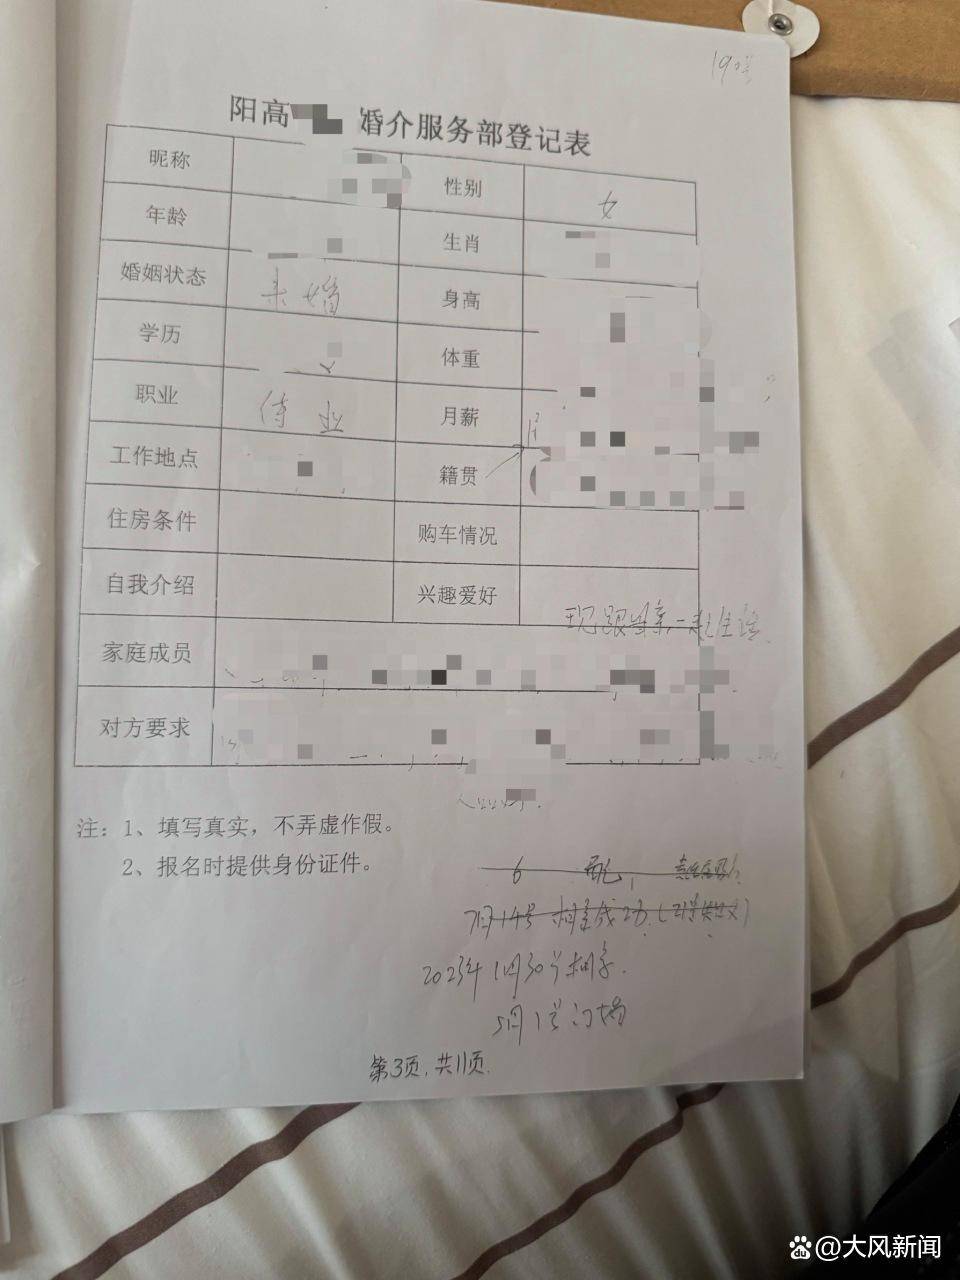 19号
阳高 婚介服务部登记表
昵称 性别 女
年龄 生肖
婚姻状态 未婚 身高
学历 体重
职业 待业 月薪
工作地点 籍贯
住房条件 购车情况
自我介绍 兴趣爱好
现跟母亲一起生活
家庭成员
对方要求
注：1、填写真实，不弄虚作假。
2、报名时提供身份证件。
6
7月14号相亲成功
2023年1月30号相亲.
5月1号订婚
第3页,共11页.
@大风新闻